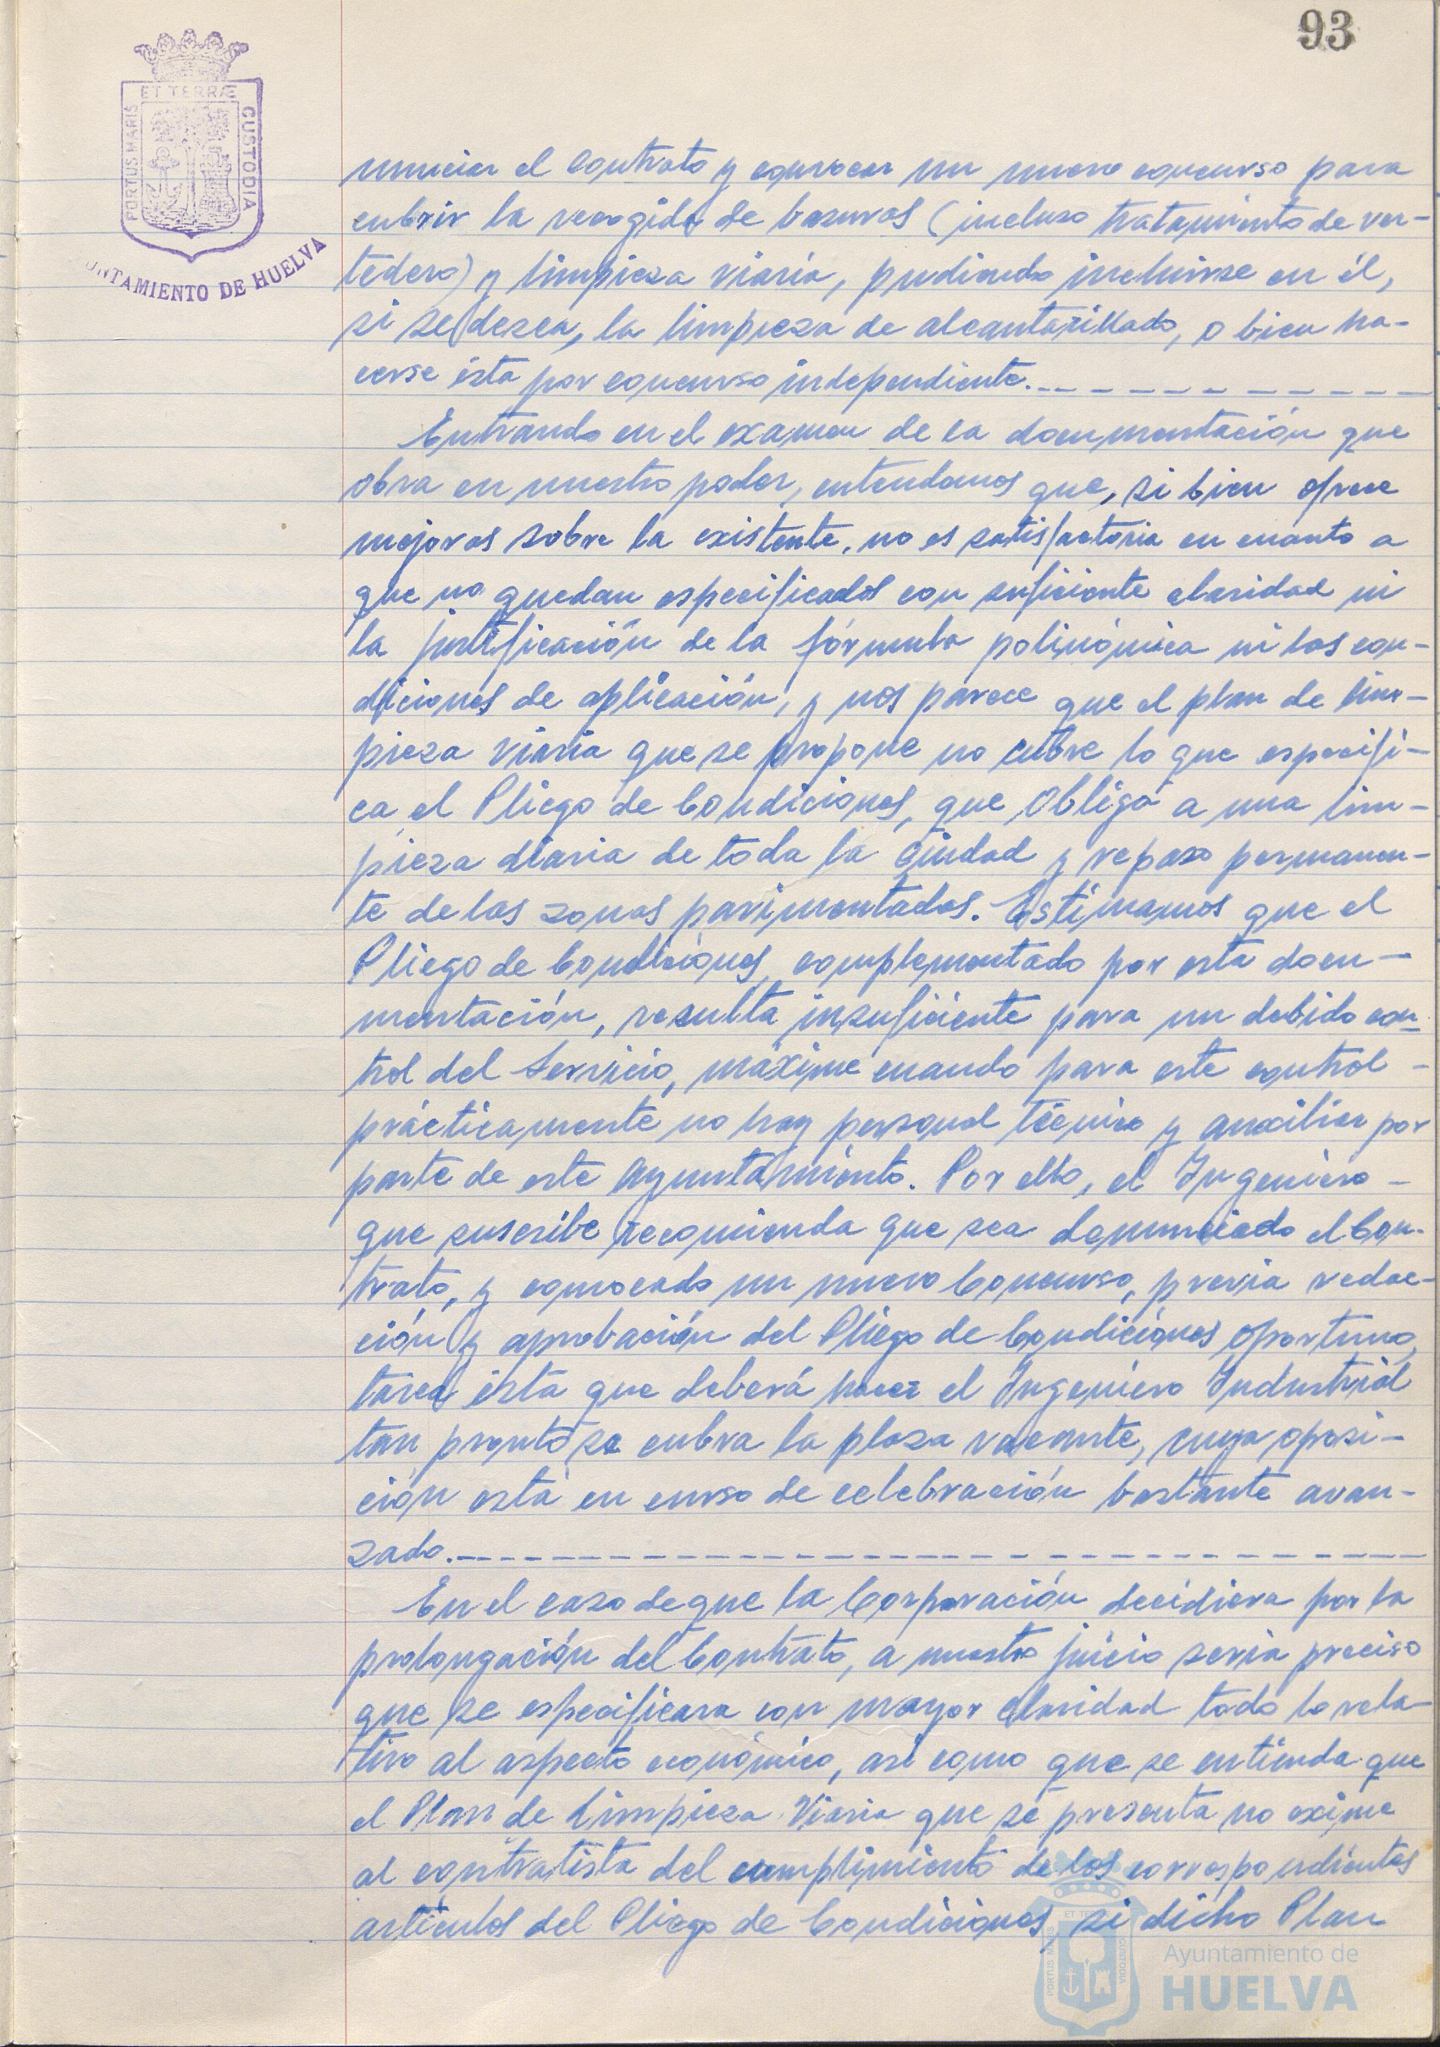 93
ET TERRÆ
PORTUS MARIS
CUSTODIA
UNTAMIENTO DE HUELVA
nunciar el contrato y convocar un nuevo concurso para
cubrir la recogida de basuras (incluso tratamiento de ver-
tedero) y limpieza viaria, pudiendo incluirse en él,
si se desea, la limpieza de alcantarillado, o bien ha-
cerse ésta por concurso independiente.
Entrando en el examen de la documentación que
obra en nuestro poder, entendemos que, si bien ofrece
mejoras sobre la existente, no es satisfactoria en cuanto a
que no quedan especificados con suficiente claridad ni
la justificación de la fórmula polinómica ni las con-
diciones de aplicación, y nos parece que el plan de lim-
pieza viaria que se propone no cubre lo que especifi-
ca el Pliego de Condiciones, que obliga a una lim-
pieza diaria de toda la Ciudad y repaso permanen-
te de las zonas pavimentadas. Estimamos que el
Pliego de Condiciones, complementado por esta docu-
mentación, resulta insuficiente para un debido con-
trol del Servicio, máxime cuando para este control -
prácticamente no hay personal técnico y auxiliar por
parte de este Ayuntamiento. Por ello, el Ingeniero -
que suscribe recomienda que sea denunciado el Con-
trato, y convocado un nuevo Concurso, previa redac-
ción y aprobación del Pliego de Condiciones oportuno,
tarea ésta que deberá hacer el Ingeniero Industrial
tan pronto se cubra la plaza vacante, cuya oposi-
ción está en curso de celebración bastante avan-
zado.
En el caso de que la Corporación decidiera por la
prolongación del Contrato, a nuestro juicio seria preciso
que se especificara con mayor claridad todo lo rela-
tivo al aspecto económico, asi como que se entienda que
el Plan de Limpieza Viaria que se presenta no exime
al contratista del cumplimiento de los correspondientes
artículos del Pliego de Condiciones, si dicho Plan
ET TE
PORTUS MARIS
CUSTODIA
Ayuntamiento de
HUELVA